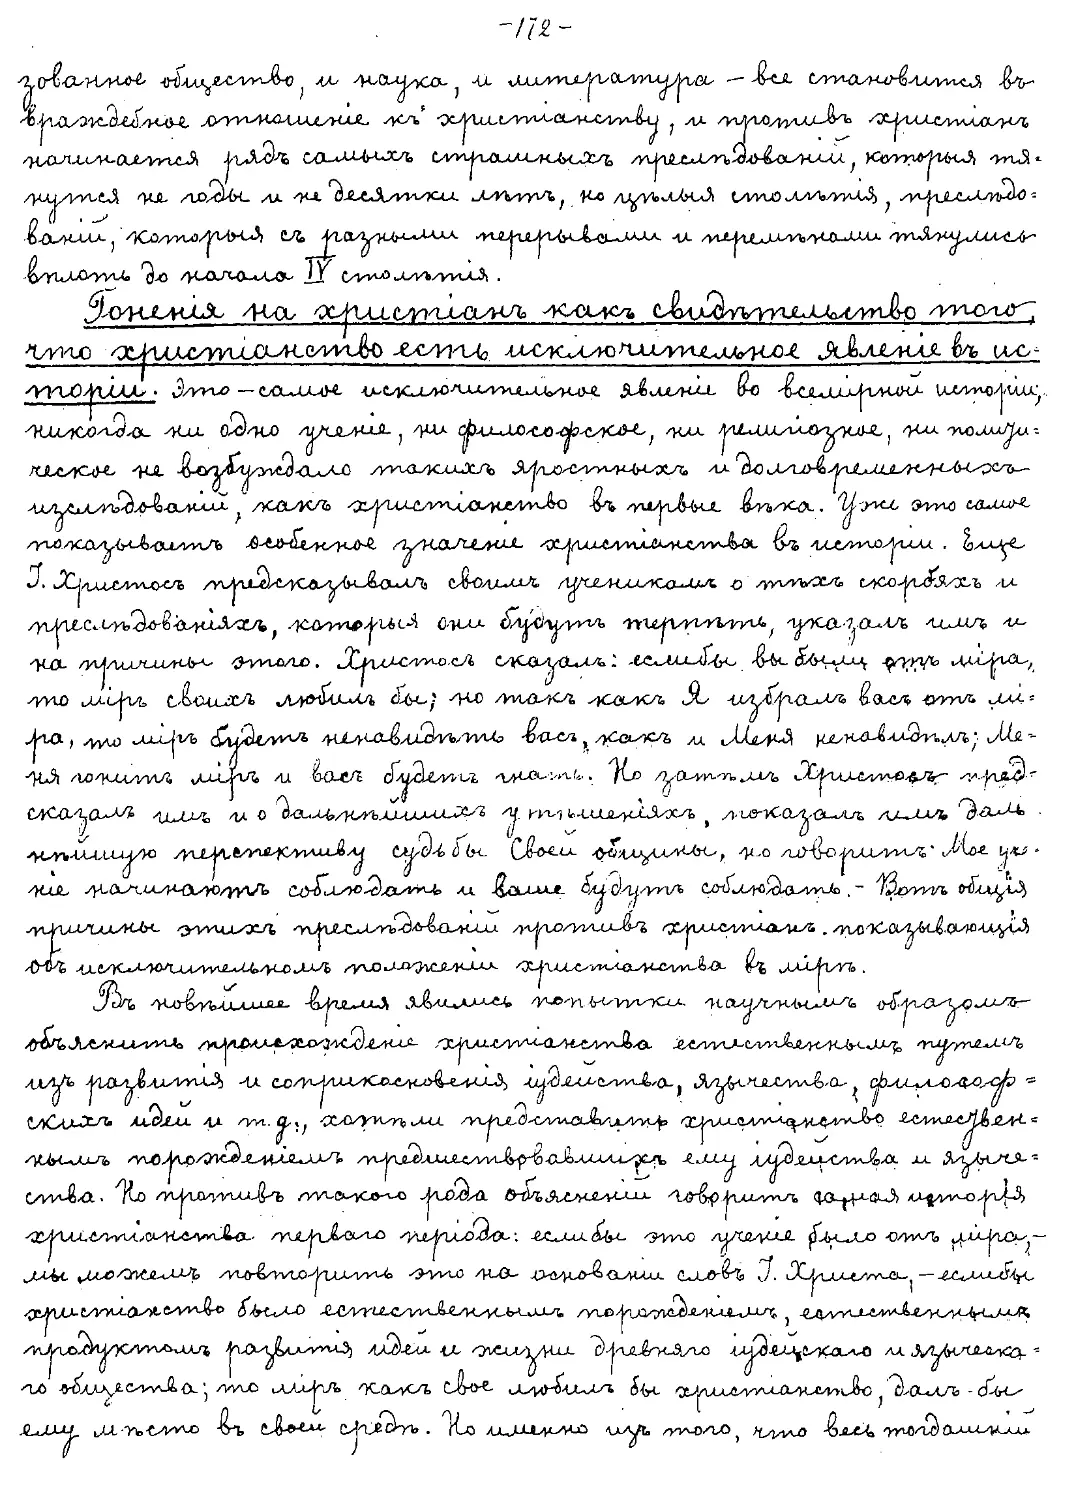 -172-
зованное общество, и наука, и литература – все становится въ
враждебное отношеніе къ христіанству, и противъ христіанъ
начинается рядъ самыхъ страшныхъ преслѣдованій, которыя тя-
нутся не годы и не десятки лѣтъ, но цѣлыя столѣтія, преслѣдо-
ваній, которыя съ разными перерывами и перемѣнами тянулись
вплоть до начала IV столѣтія.
Гоненія на христіанъ какъ свидѣтельство того,
что христіанство есть исключительное явленіе въ ис-
торіи. Это – самое исключительное явленіе во всемірной исторіи;
никогда ни одно ученіе, ни философское, ни религіозное, ни полити-
ческое не возбуждало такихъ яростныхъ и долговременныхъ
изслѣдованій, какъ христіанство въ первые вѣка. Уже это самое
показываетъ особенное значеніе христіанства въ исторіи. Еще
І. Христосъ предсказывалъ своимъ ученикамъ о тѣхъ скорбяхъ и
преслѣдованіяхъ, которыя они будутъ терпѣть, указалъ имъ и
на причины этого. Христосъ сказалъ: еслибы вы были отъ міра,
то міръ своихъ любилъ бы; но такъ какъ Я избралъ васъ отъ мі-
ра, то міръ будетъ ненавидѣть васъ, какъ и Меня ненавидѣлъ; Ме-
ня гонитъ міръ и васъ будетъ гнать. Но затѣмъ Христосъ пред-
сказалъ имъ и о дальнѣйшихъ утѣшеніяхъ, показалъ имъ даль
нѣйшую перспективу судьбы Своей общины, но говоритъ: Мое уче-
ніе начинаютъ соблюдать и ваше будутъ соблюдать. – Вотъ общія
причины этихъ преслѣдованій противъ христіанъ, показывающія
объ исключительномъ положеніи христіанства въ мірѣ.
Въ новѣйшее время явились попытки научнымъ образомъ
объяснить происхожденіе христіанства естественнымъ путемъ
изъ развитія и соприкосновенія іудейства, язычества, философ-
скихъ идей и т.д., хотѣли представить христіанство естествен-
нымъ порожденіемъ предшествовавшихъ ему іудейства и языче-
ства. Но противъ такого рода объясненій говоритъ самая исторія
христіанства перваго періода: еслибы это ученіе было отъ міра, –
мы можемъ повторить это на основаніи словъ І. Христа, – еслибы
христіанство было естественнымъ порожденіемъ, естественнымъ
продуктомъ развитія идей и жизни древняго іудейскаго и языческа-
го общества; то міръ какъ свое любилъ бы христіанство, далъ-бы
ему мѣсто въ своей средѣ. Но именно изъ того, что весь тогдашній